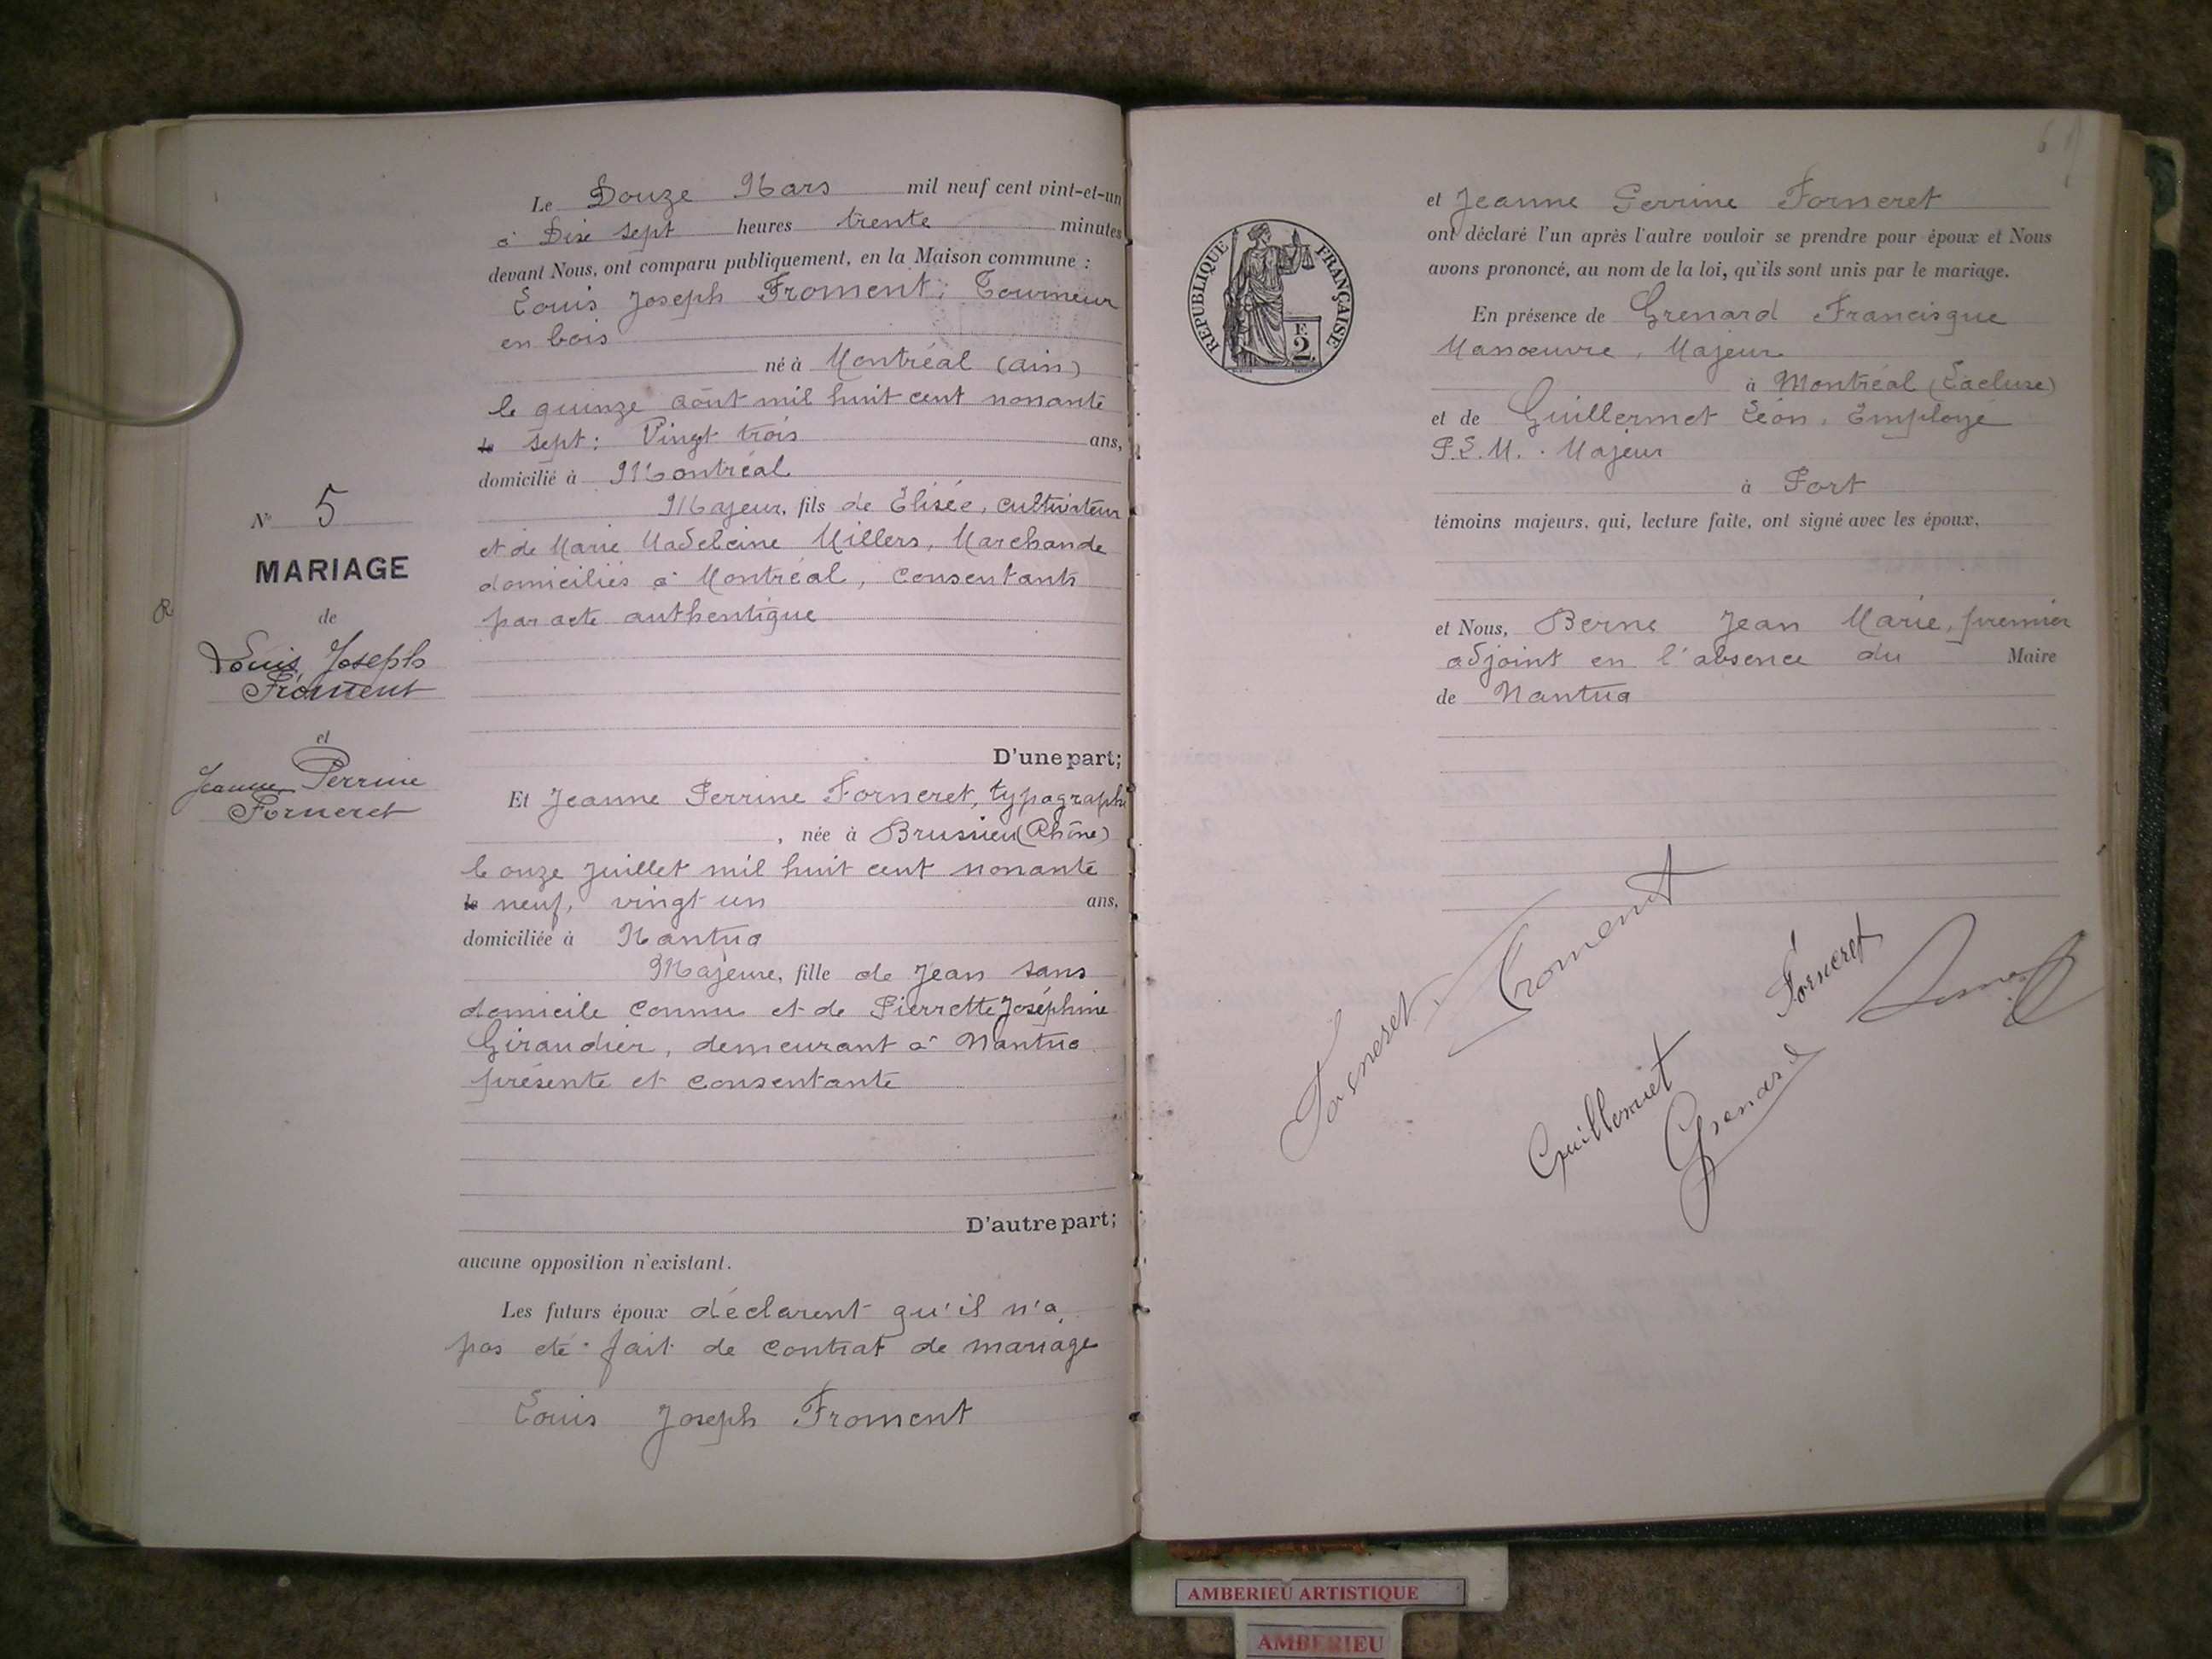 Le Douze Mars mil neuf cent vint-et-un
à Dix sept heures trente minutes
devant Nous, ont comparu publiquement, en la Maison commune :
Louis Joseph Froment, Tourneur
en bois
né à Montréal (Ain)
le quinze août mil huit cent nonante
sept : Vingt trois ans,
domicilié à Montréal
Majeur, fils de Elisée, cultivateur
et de Marie Madeleine Millers, Marchande
domiciliés à Montréal, consentants
par acte authentique
D'une part;
Et Jeanne Perrine Forneret, typographe
, née à Brussieu (Rhône)
le onze Juillet mil huit cent nonante
neuf, vingt un ans,
domiciliée à Nantua
Majeure, fille de Jean sans
domicile connu et de Pierrette Joséphine
Giraudier, demeurant à Nantua
présente et consentante
D'autre part;
aucune opposition n'existant.
Les futurs époux déclarent qu'il n'a
pas été fait de contrat de mariage
Louis Joseph Froment
N° 5
MARIAGE
de
Louis Joseph
Froment
et
Jeanne Perrine
Forneret
REPUBLIQUE FRANÇAISE
F.
2.
et Jeanne Perrine Forneret
ont déclaré l'un après l'autre vouloir se prendre pour époux et Nous
avons prononcé, au nom de la loi, qu'ils sont unis par le mariage.
En présence de Grenard Francisque
Manœuvre, Majeur
à Montréal (Lacluse)
et de Guillermet Léon, Employé
P.L.M. Majeur
à Port
témoins majeurs, qui, lecture faite, ont signé avec les époux,
et Nous, Berne Jean Marie, premier
adjoint en l'absence du Maire
de Nantua
Forneret
Froment
Guillermet
Grenard
Forneret
AMBERIEU ARTISTIQUE
AMBERIEU